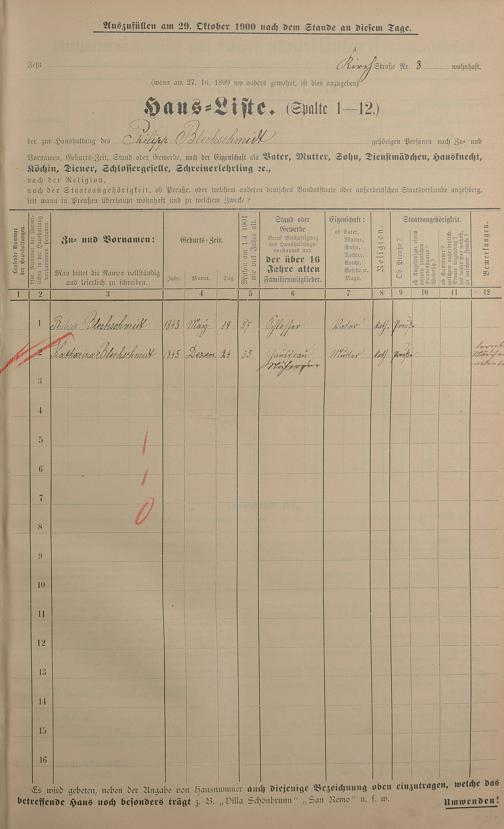 Auszufüllen am 29. Oktober 1900 nach dem Stande an diesem Tage.
Jetzt Kirch Straße Nr. 3 wohnhaft.
(wenn am 27. 10. 1899 wo anders gewohnt, ist dies anzugeben)
Haus-Liste. (Spalte 1—12.)
der zur Haushaltung des Philipp Blechschmidt gehörigen Personen nach Zu- und
Vornamen, Geburts-Zeit, Stand oder Gewerbe, nach der Eigenschaft als Vater, Mutter, Sohn, Dienstmädchen, Hausknecht,
Köchin, Diener, Schlossergeselle, Schreinerlehrling ec.,
nach der Religion,
nach der Staatsangehörigkeit, ob Preuße, oder welchem anderen deutschen Bundesstaate oder außerdeutschen Staatsverbande angehörig,
seit wann in Preußen überhaupt wohnhaft und zu welchem Zwecke?
Laufende Nummer der Haushaltungen.
Zu- und Vornamen:
Man bittet die Namen vollständig und leserlich zu schreiben.
Geburts-Zeit.
Jahr. Monat. Tag.
Mithin am 1. 4. 1901 wie viel Jahre alt.
Stand oder Gewerbe
der über 16 Jahre alten Familienmitglieder.
Eigenschaft:
ob Vater, Mutter, Sohn, Tochter, Knecht, Geselle u. Magd.
Religion.
Staatsangehörigkeit.
Ob Preuße?
Bemerkungen.
1 2 3 4 5 6 7 8 9 10 11 12
1 Philipp Blechschmidt 1843 May 19 57 Schlosser Vater kath. Preuße
2 Katharina Blechschmidt 1845 Dezem. 24 55 Hausfrau Mutter kath. Preuße
3
4
5
6
7
8
9
10
11
12
13
14
15
16
1
1
0
Es wird gebeten, neben der Angabe von Hausnummer auch diejenige Bezeichnung oben einzutragen, welche das
betreffende Haus noch besonders trägt z. B. „Villa Schönbrunn" „San Remo" u. s. w.
Umwenden!